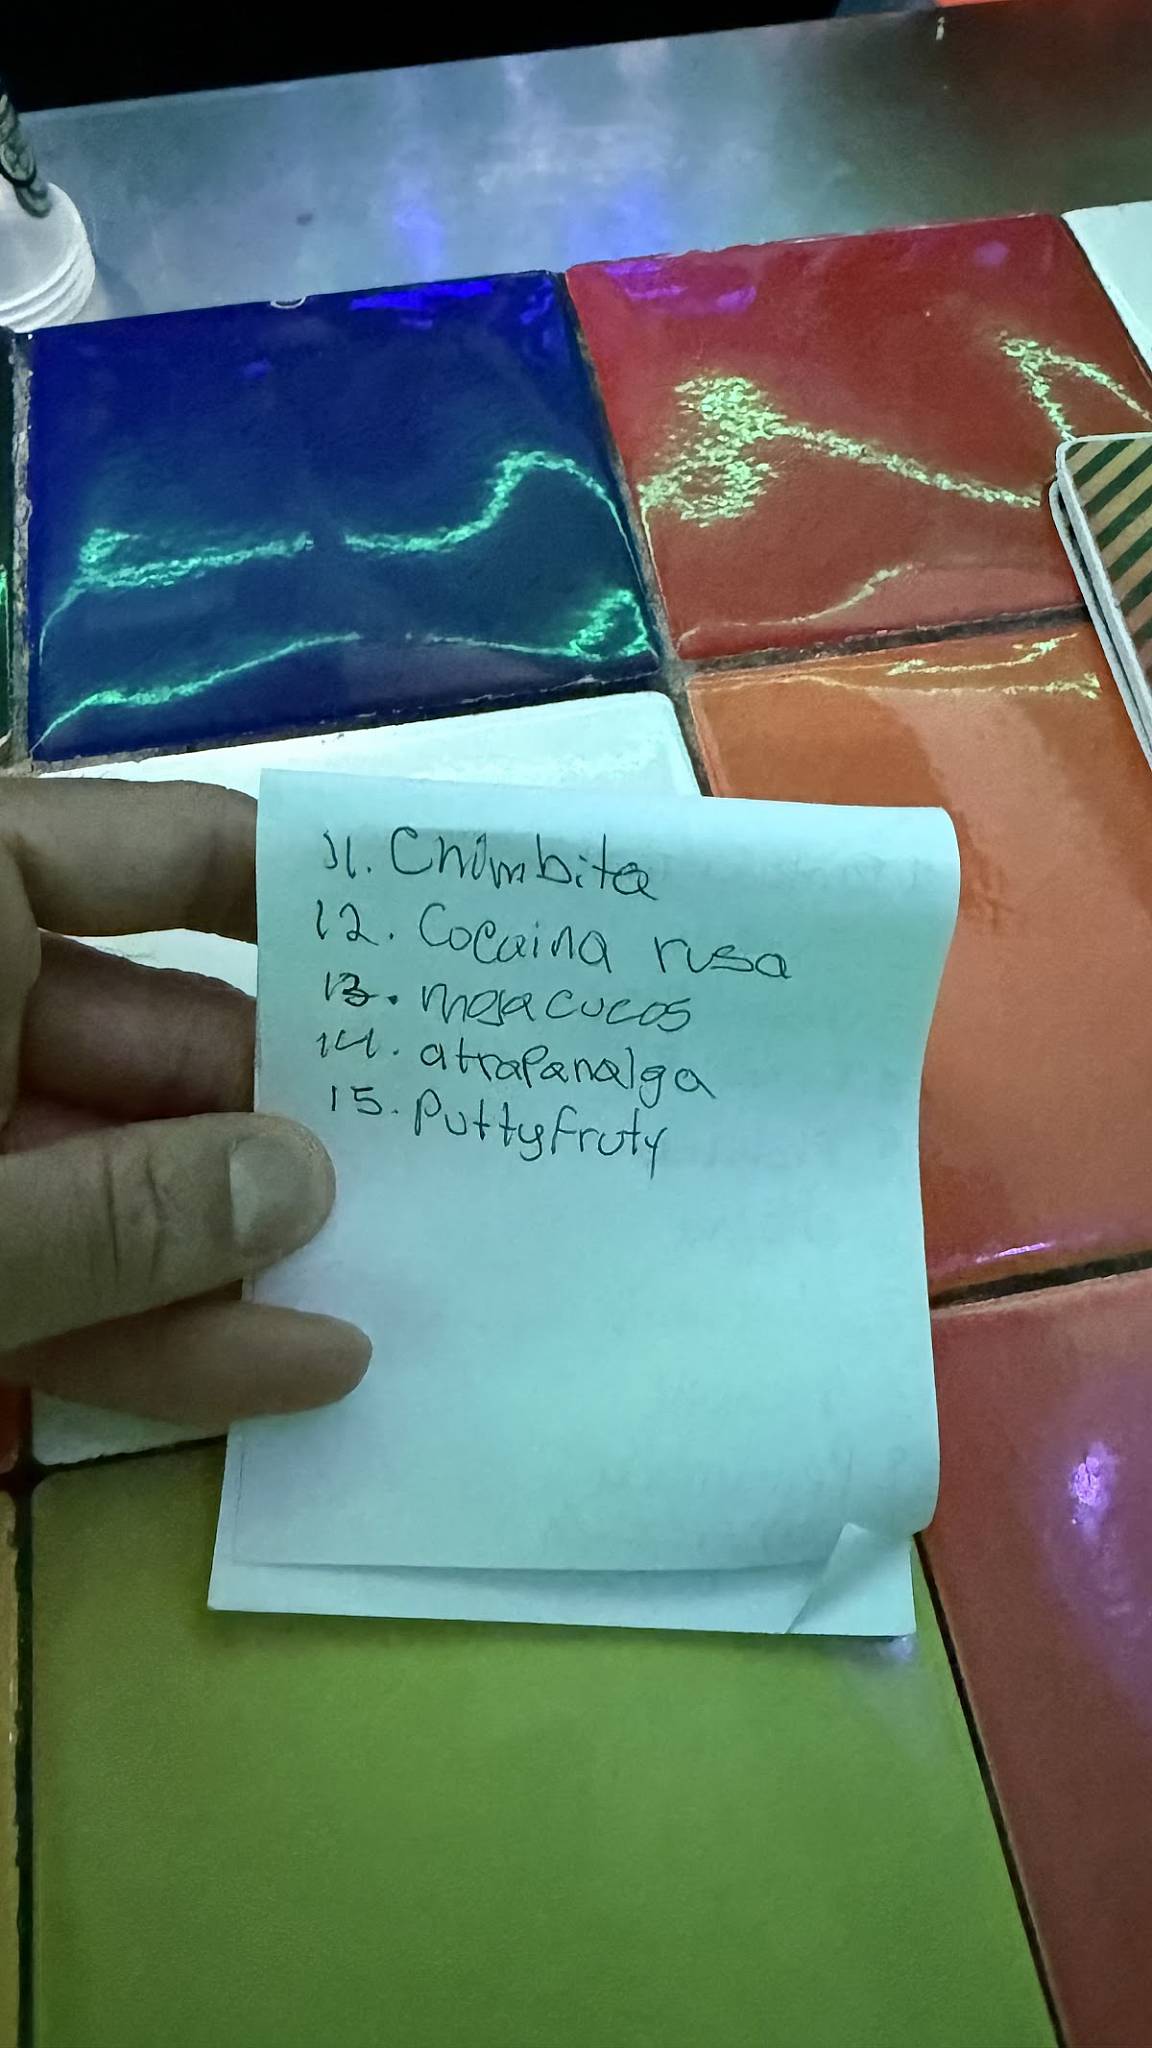 11. Chimbita
12. Cocaina rusa
13. megacucos
14. atrapanalga
15. Puttyfruty